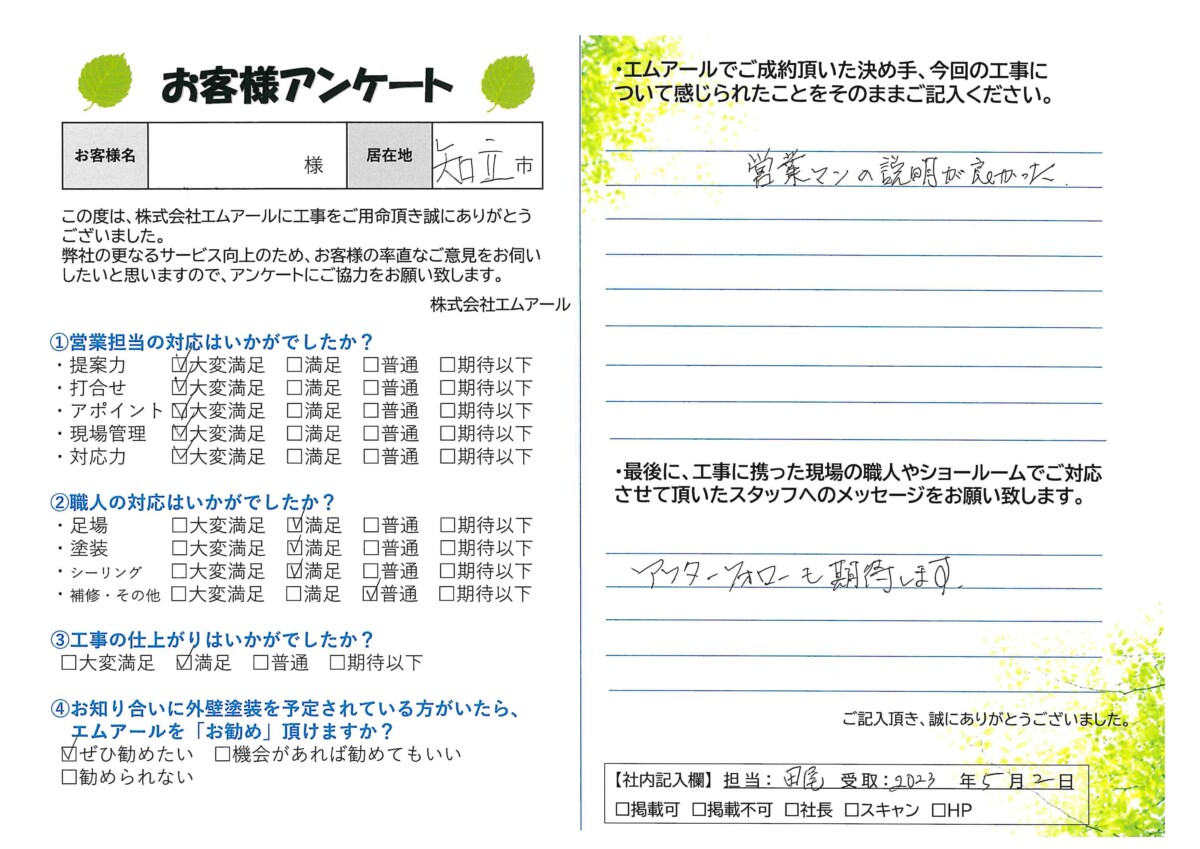 お客様アンケート
お客様名 様 居在地 知立市
この度は、株式会社エムアールに工事をご用命頂き誠にありがとう
ございました。
弊社の更なるサービス向上のため、お客様の率直なご意見をお伺い
したいと思いますので、アンケートにご協力をお願い致します。
株式会社エムアール
①営業担当の対応はいかがでしたか？
・提案力 ☑大変満足 □満足 □普通 □期待以下
・打合せ ☑大変満足 □満足 □普通 □期待以下
・アポイント ☑大変満足 □満足 □普通 □期待以下
・現場管理 ☑大変満足 □満足 □普通 □期待以下
・対応力 ☑大変満足 □満足 □普通 □期待以下
②職人の対応はいかがでしたか？
・足場 □大変満足 ☑満足 □普通 □期待以下
・塗装 □大変満足 ☑満足 □普通 □期待以下
・シーリング □大変満足 ☑満足 □普通 □期待以下
・補修・その他 □大変満足 □満足 ☑普通 □期待以下
③工事の仕上がりはいかがでしたか？
□大変満足 ☑満足 □普通 □期待以下
④お知り合いに外壁塗装を予定されている方がいたら、
エムアールを「お勧め」頂けますか？
☑ぜひ勧めたい □機会があれば勧めてもいい
□勧められない
・エムアールでご成約頂いた決め手、今回の工事に
ついて感じられたことをそのままご記入ください。
営業マンの説明が良かった.
・最後に、工事に携った現場の職人やショールームでご対応
させて頂いたスタッフへのメッセージをお願い致します。
アフターフォローも期待します.
ご記入頂き、誠にありがとうございました。
【社内記入欄】担当：田尾 受取：2023 年5月2日
□掲載可 □掲載不可 □社長 □スキャン □HP